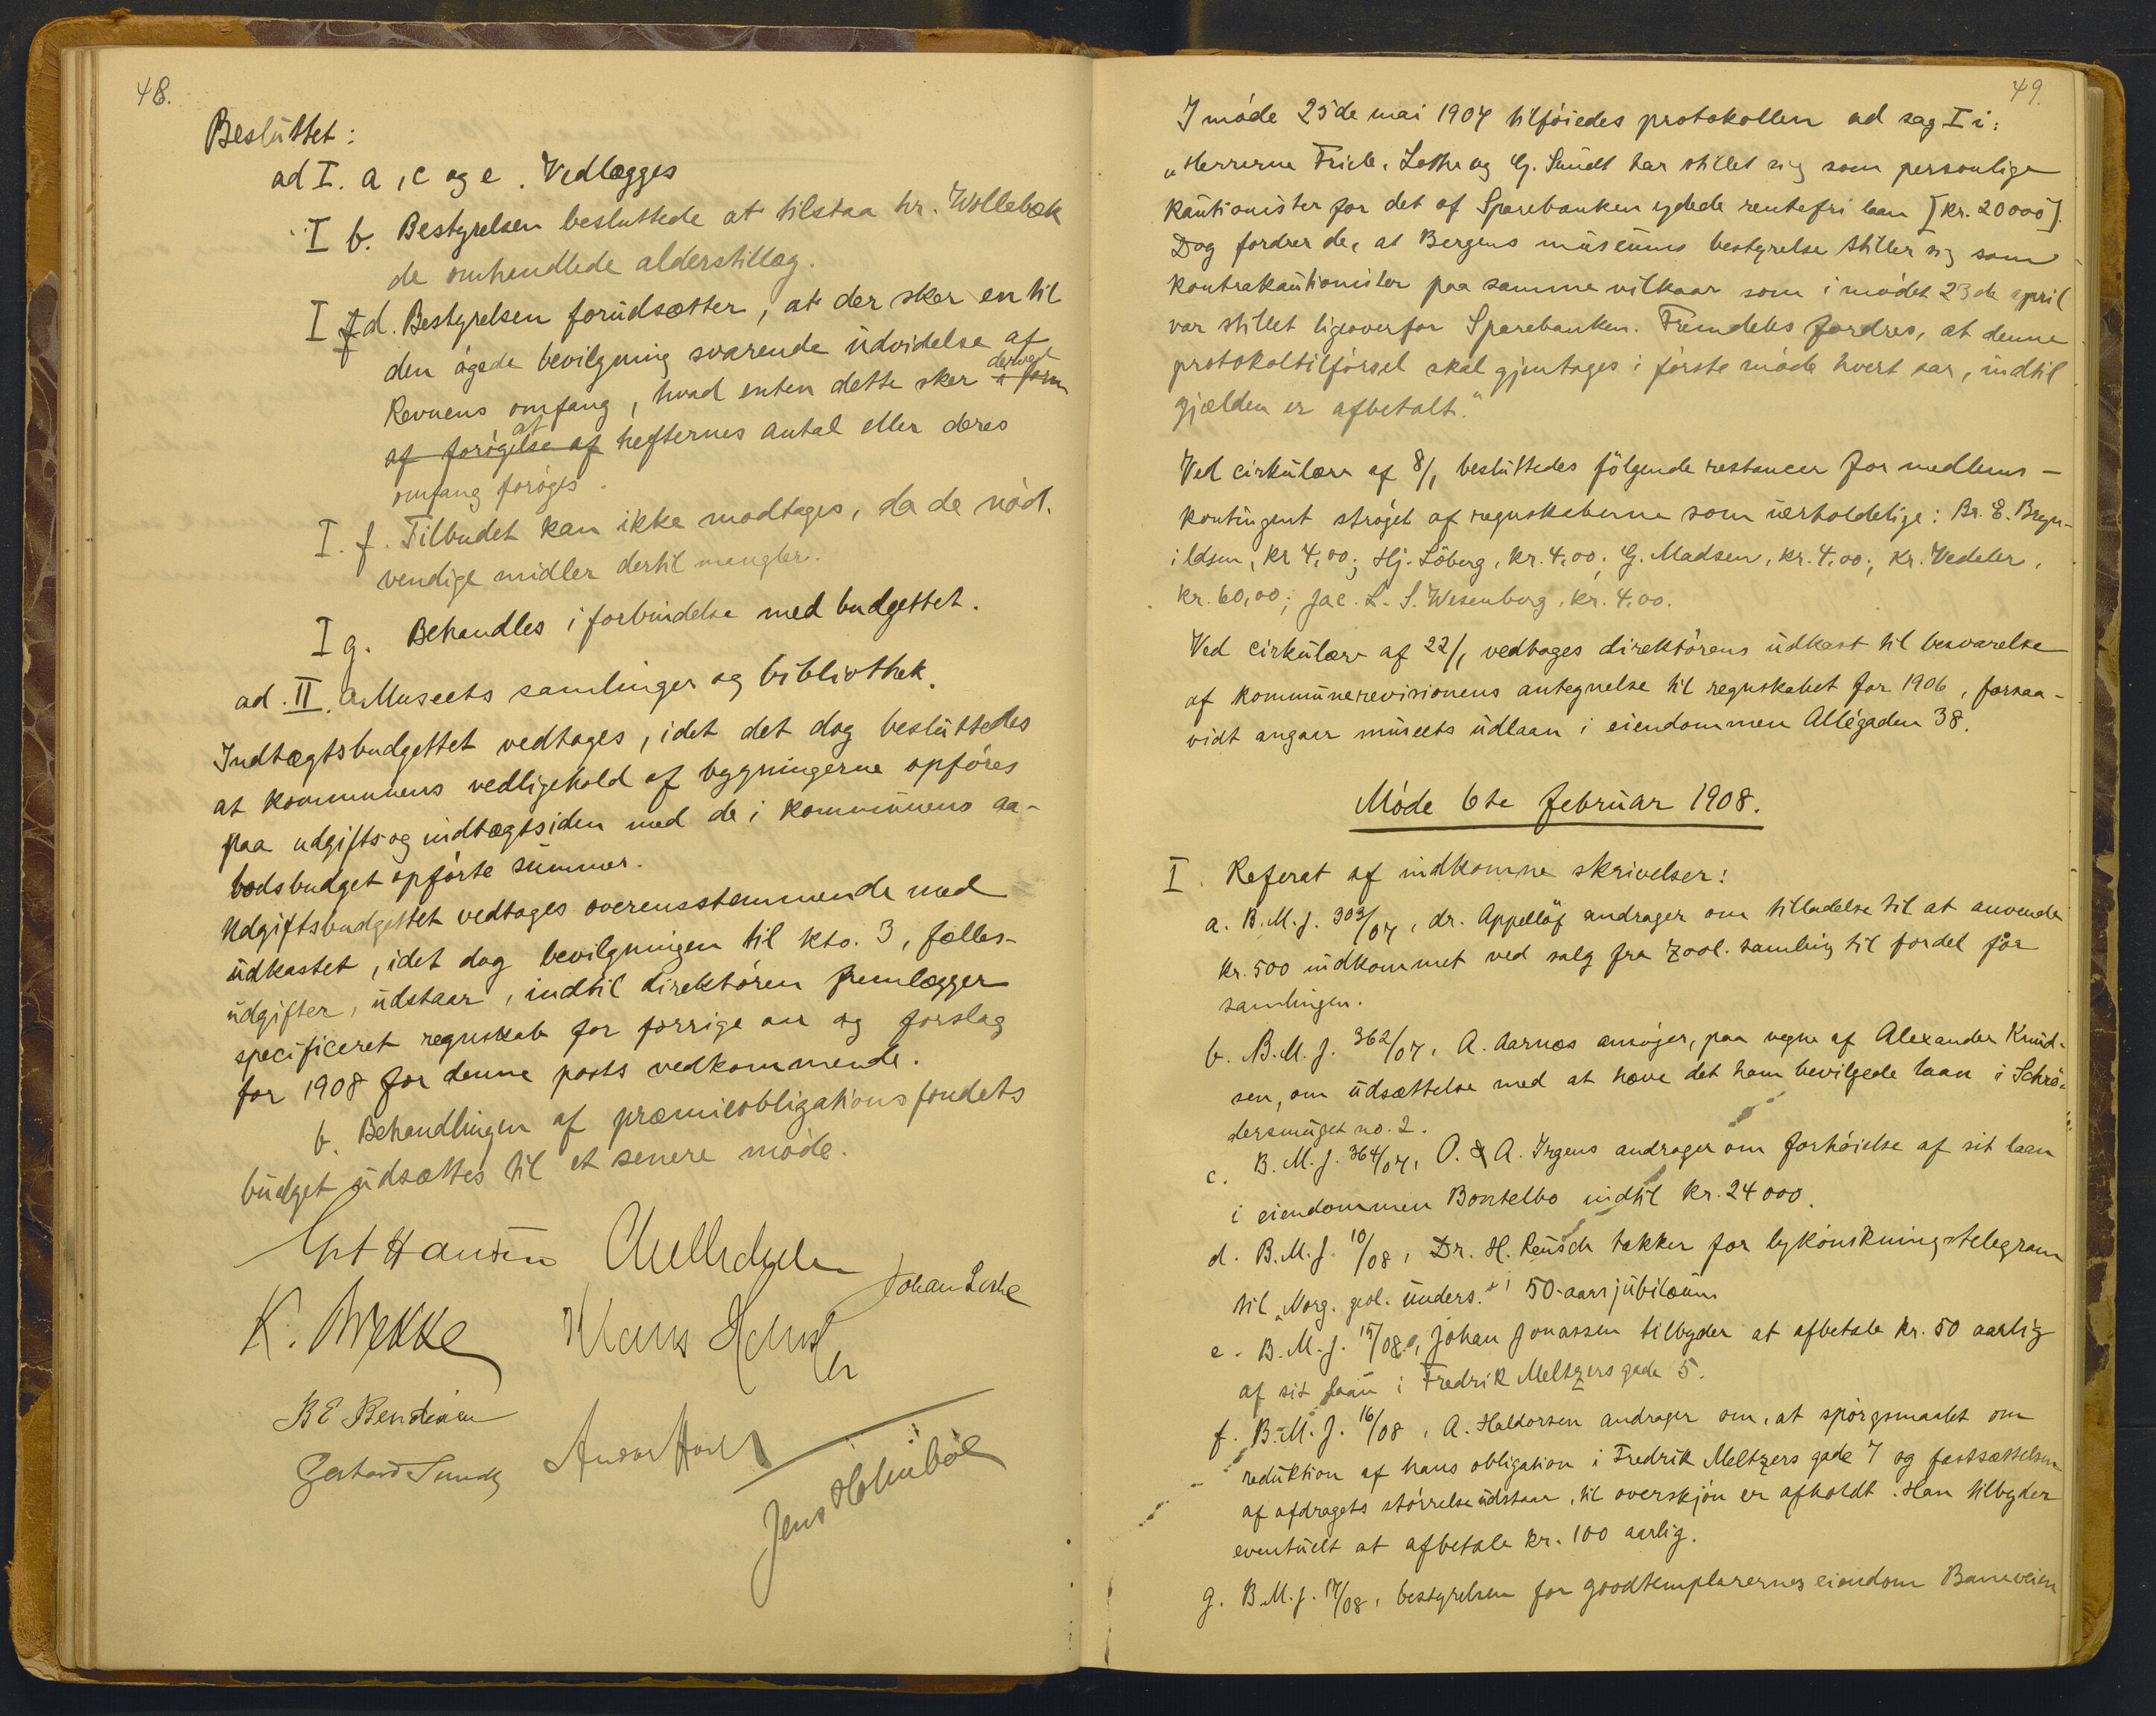 48.
Besluttet:
ad I. a, c og e. Vedlægges
I b. Bestyrelsen besluttede at tilstaa hr. Wollebæk
de omhendlede alderstillæg.
I d. Bestyrelsen forudsætter, at der sker en til
den øgede bevilgning svarende udvidelse af
Revuens omfang, hvad enten dette sker derved
i form
at
af forøgelse af hefternes antal eller deres
omfang forøges.
I. f. Tilbudet kan ikke modtages, da de nød.
vendige midler dertil mangler.
I g. Behandles i forbindelse med budgettet.
ad. II. a. Museets samlinger og bibliothek.
Indtægtsbudgettet vedtages, idet det dog besluttedes
at kommunens vedligehold af bygningerne opføres
paa udgifts og indtægtsiden med de i kommunens aa-
bodsbudget opførte summer.
Udgiftsbudgettet vedtages overensstemmende med
udkastet, idet dog bevilgningen til kto. 3, fælles-
udgifter, udstaar, indtil direktøren fremlægger
specificeret regnskab for forrige aar og forslag
for 1908 for denne posts vedkommende.
b. Behandlingen af præmieobligationsfondets
budget udsættes til et senere møde.
Hansen
Johan Lothe
K. Brekke
B E Bendixen
Gerhard Sundt
Jens Holmboe
49.
I møde 25de mai 1907 tilføiedes protokollen ad sag I i:
„Herrerne Friele, Lothe og G. Sundt har stillet sig som personlige
kautionister for det af Sparebanken ydede rentefri laan [kr. 20000].
Dog fordrer de, at Bergens museums bestyrelse stiller sig som
kontrakautionister paa samme vilkaar som i mødet 23de april
var stillet ligeoverfor Sparebanken. Fremdeles fordres, at denne
protokoltilførsel skal gjentages i første møde hvert aar, indtil
gjælden er afbetalt."
Ved cirkulære af 8/1 besluttedes følgende restancer for medlems-
kontingent strøget af regnskaberne som uerholdelige: Br. E. Bryn-
ildsen, kr 4,00; Hj. Løberg, kr. 4,00; G. Madsen, kr. 4,00; Kr. Vedeler,
kr. 60,00; Jac. L. S. Wesenberg, kr. 4,00.
Ved cirkulære af 22/1 vedtages direktørens udkast til besvarelse
af kommunerevisionens antegnelse til regnskabet for 1906, forsaa-
vidt angaar museets udlaan i eiendommen Allégaden 38.
Møde 6te februar 1908.
I. Referat af indkomne skrivelser:
a. B. M. J. 303/07, dr. Appelløf andrager om tilladelse til at anvende
kr. 500 indkommet ved salg fra zool. samling til fordel for
samlingen.
b. B. M. J. 362/07, A. Aarnæs ansøger, paa vegne af Alexander Knud-
sen, om udsættelse med at hæve det ham bevilgede laan i Schrø-
dersmuget no. 2.
c. B. M. J. 364/07, O. & A. Irgens andrager om forhøielse af sit laan
i eiendommen Bontelbo indtil kr. 24000.
d. B. M. J. 10/08, Dr. H. Reusch takker for lykønskningstelegram
til „Norg. geol. unders." 50-aarsjubilæum
e. B. M. J. 15/08, Johan Jonassen tilbyder at afbetale kr. 50 aarlig
af sit laan i Fredrik Meltzers gade 5.
f. B. M. J. 16/08, A. Haldorsen andrager om, at spørgsmaalet om
reduktion af hans obligation i Fredrik Meltzers gade 7 og fastsættelsen
af afdragets størrelse udstaar, til overskjøn er afholdt. Han tilbyder
eventuelt at afbetale kr. 100 aarlig.
g. B. M. J. 17/08, bestyrelsen for goodtemplarernes eiendom Baneveien